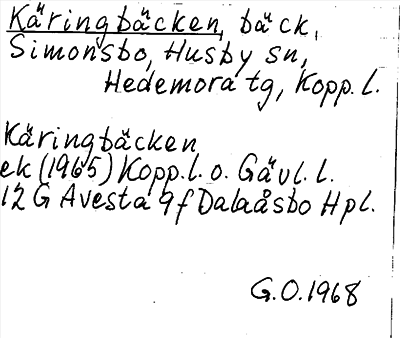 Käringbäcken, bäck,
Simonsbo, Husby sn,
Hedemora tg, Kopp. l.
Käringbäcken
ek (1965) Kopp. l. o. Gävl. l.
12 G Avesta 9f Dalaåsbo Hpl.
G.O. 1968